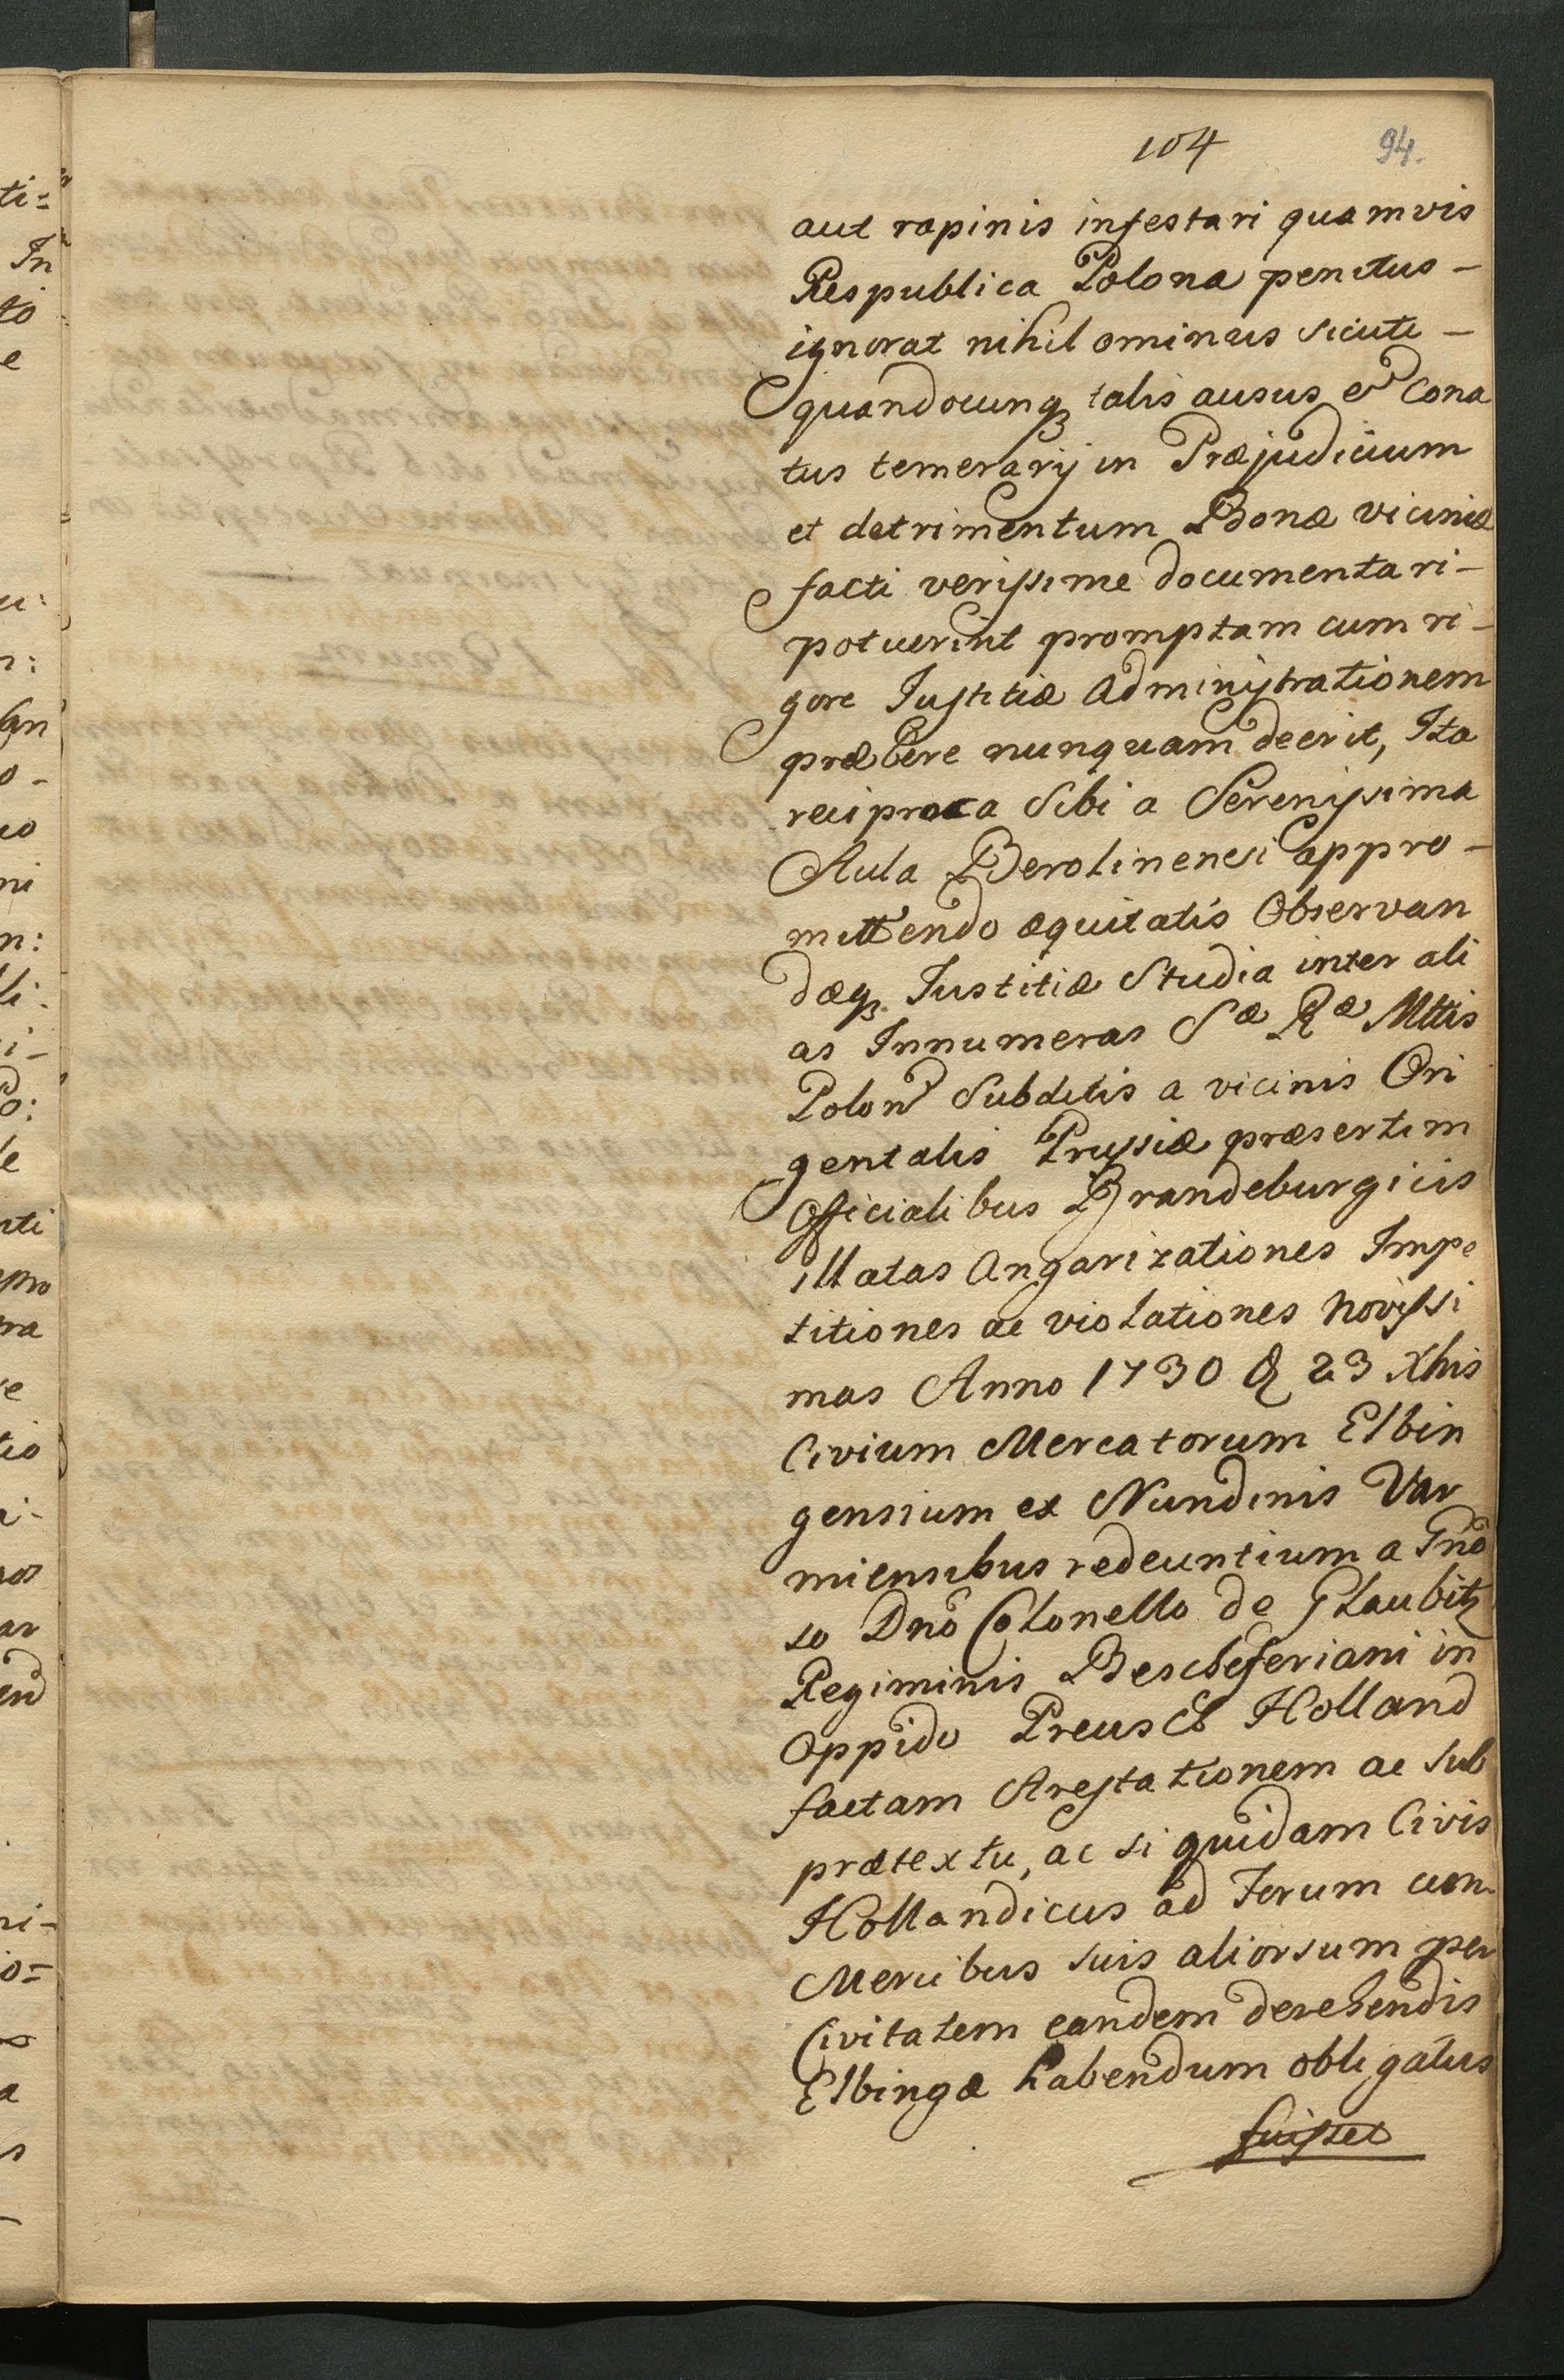 104 94.
aut rapinis infestari quamvis
Respublica Polona penitus -
ignorat nihilominus sicuti -
quandocunq; talis ausus et Cona
tus temerarij in Præjudicium
et detrimentum Bonæ viciniæ
facti verissime documentari -
potuerint promptam cum ri -
gore Justitiæ administrationem
præbere nunquam deerit, Ita
reciproca sibi a Serenissima
Aula Berolinensi appro -
mittendo æquitatis Observan
dæq; Justitiæ Studia inter ali
as Innumeras Sæ Ræ Mttis
Polon Subditis a vicinis Ori
gentalis Prussiæ præsertim
Officialibus Brandeburgicis
illatas Angarizationes Impe
titiones ac violationes novissi
mas Anno 1730 & 23 Xbris
Civium Mercatorum Elbin
gensium ex Nundinis Var
miensibus redeuntium a Gnõ
so Dnõ Colonello de Glaubitz
Regiminis Bescheferiani in
Oppido Preusch Holland
factam Arestationem ac sub
prætextu, ac si quidam Civis
Hollandicus ad Forum cum
Mercibus suis aliorsum per
Civitatem eandem devehendis
Elbingæ habendum obligatus
fuisset
ti=
In
to
e
o -
io
ni
n:
li.
i -
o:
le
pro
ra
e
tio
ar
end
ni -
io=
a
s